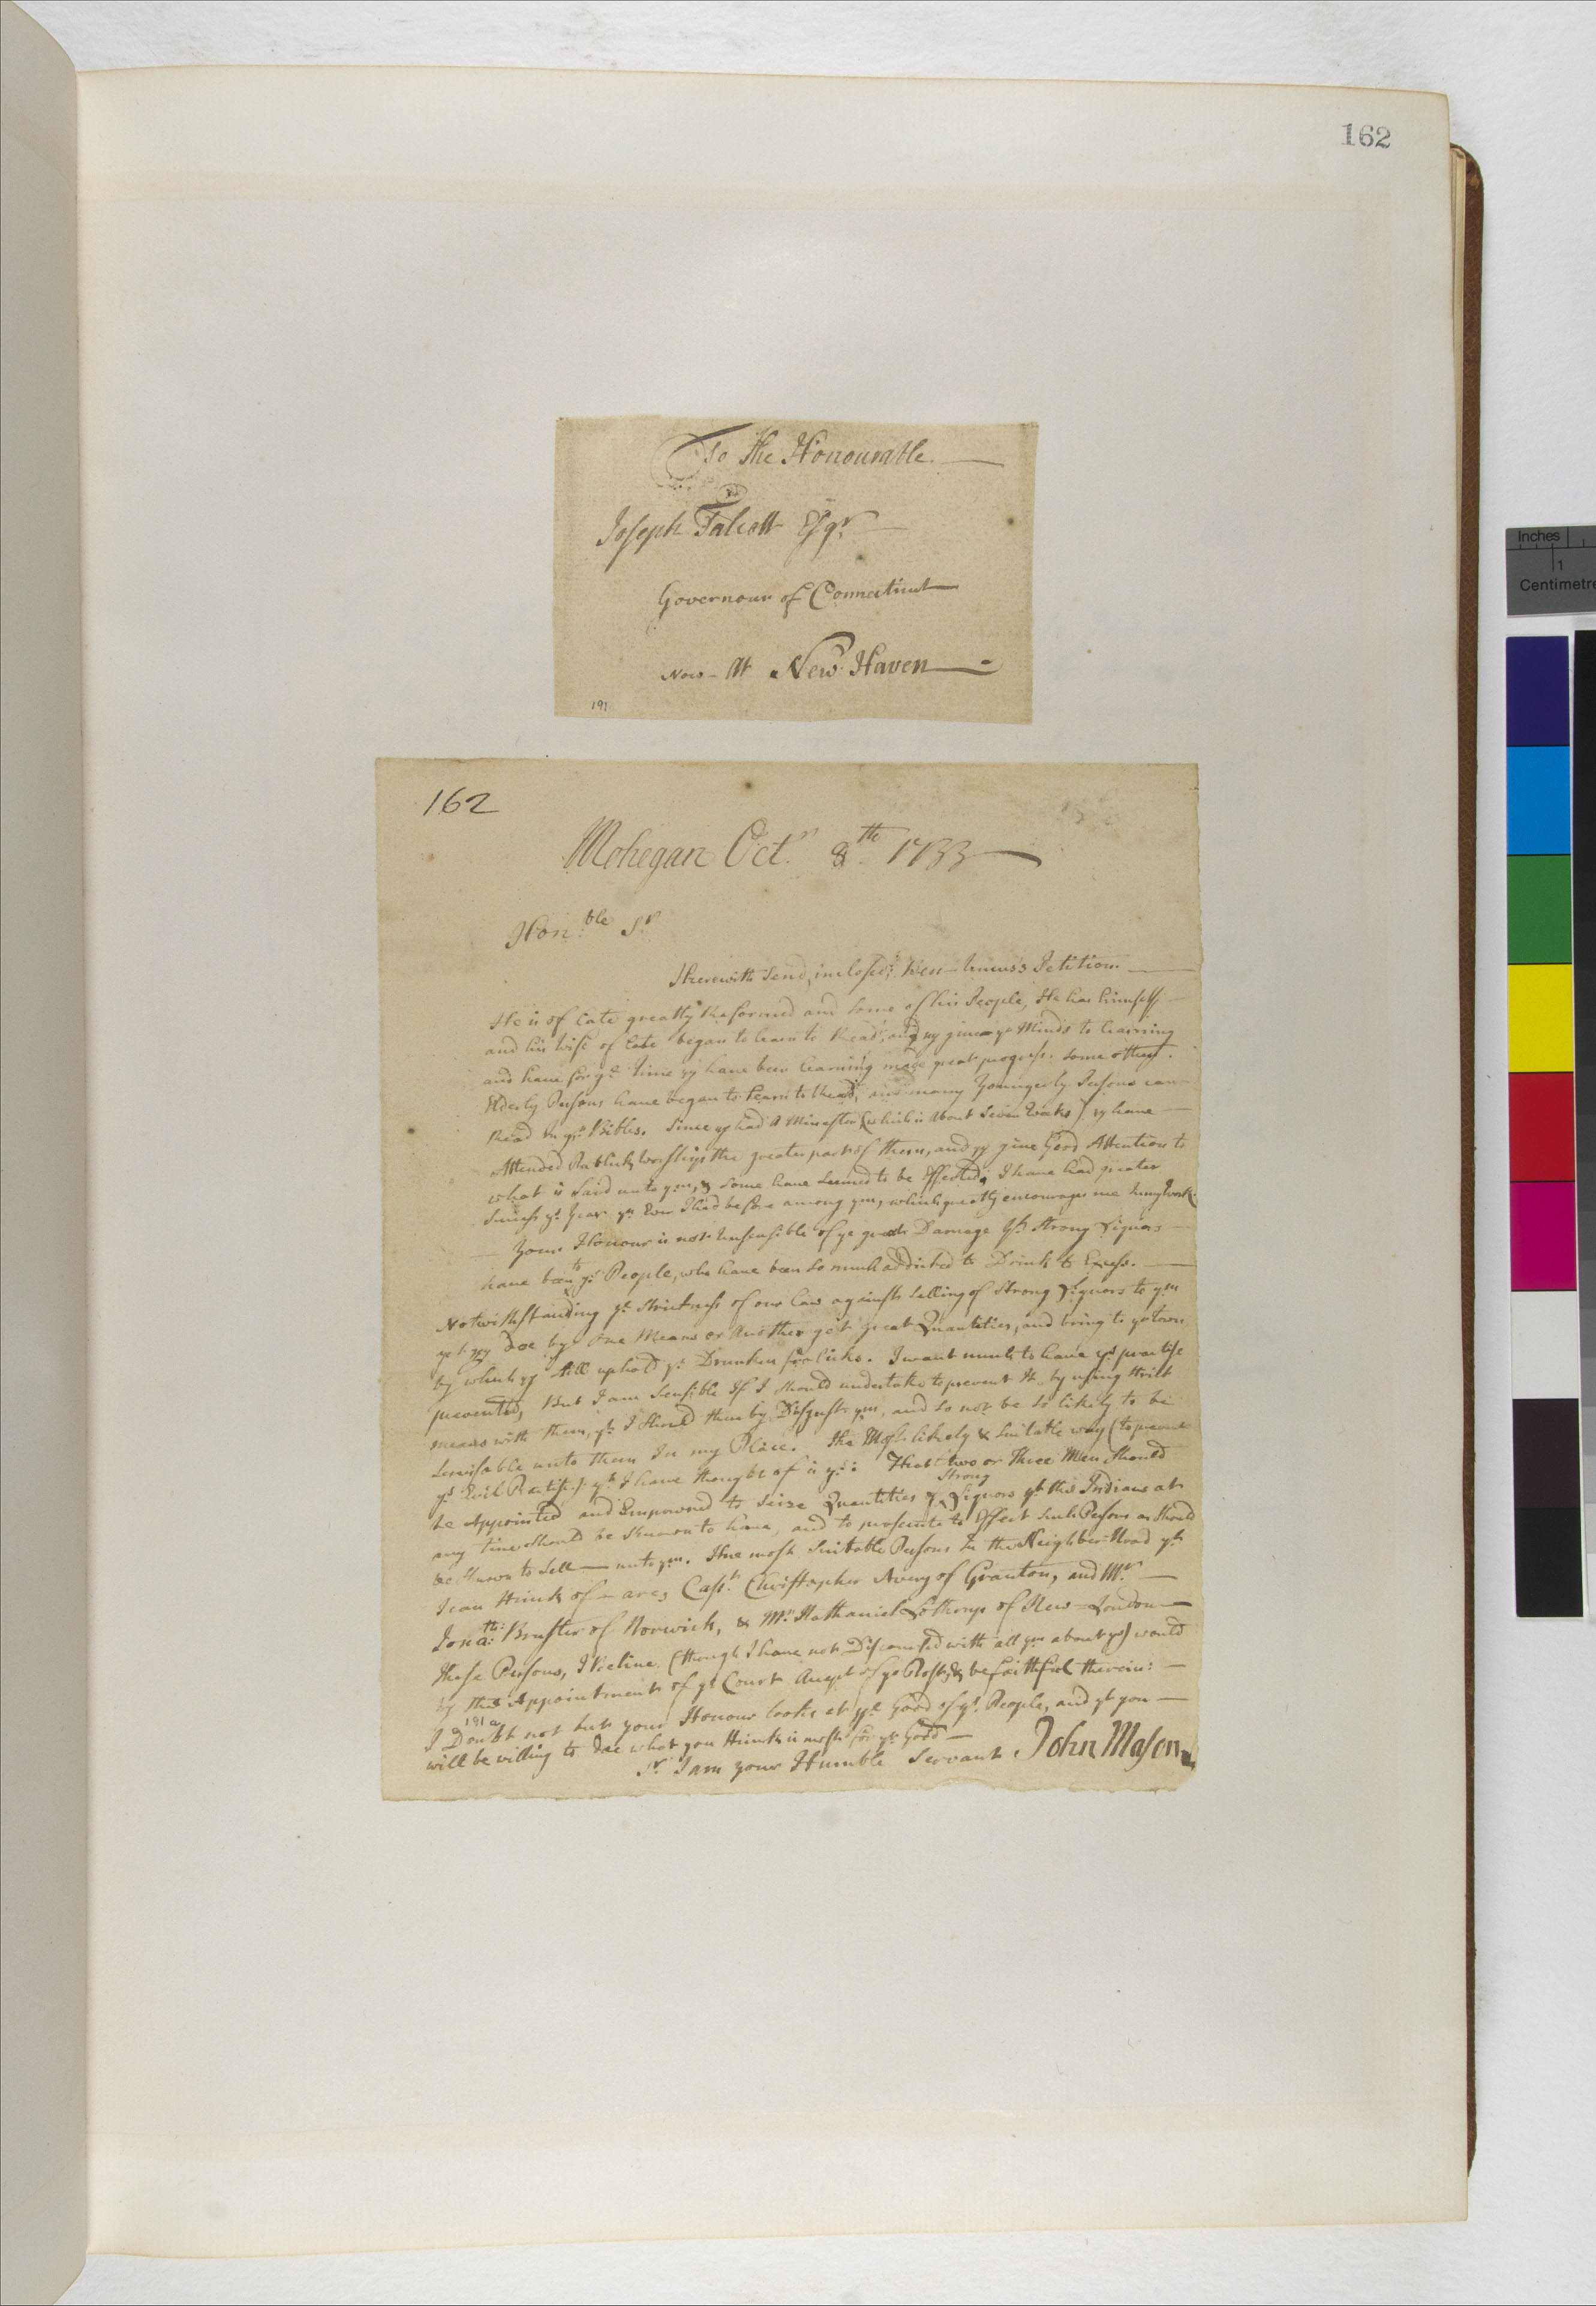 162
To The Honourable
Joseph Talcott Esqr
Governour of Connecticut
Now - At New Haven
191
162
Mohegan Octr 8th 1733
Honble Sr
I herewith Send, inclosed; Ben - Uncus's Petition.
He is of Late greatly Reformed and Some of his People, He has himself
and his Wife of Late began to learn to Read, and yy give yr Minds to learning
and have for ye Time yy have been learning made great progress. Some other
Elderly Persons have began to Learn to Read, and many Youngerly Persons can
Read in yr Bibles. Since yy had A Minester (which is About Seven Weeks) yy have
Attended Publick Worship the greater part of them, and yy give Good Attention to
what is Said unto ym, & Some have Seemed to be Effected, I have had greater
Success ys Year yn Ever I had before among ym, which greatly encourages me In my Work.
Your Honour is not Unsensible of ye great Damage yt Strong Liquors
have been to ys People, who have been So much addicted to Drink to Excess.
Notwithstanding ye Strictness of our Law against Selling of Strong Liquors to ym
yet yy Doe by One Means or Another get great Quantities, and bring to ye town
by which yy Still uphold yr Drunken frolicks. I want much to have ys practise
prevented, But I am Sensible If I Should undertake to prevent It by using Strict
means with them, yt I Should thereby Disgust ym, and So not be So likely to be
Servisable unto them In my Place. The Most likely & Suitable way (to prevent
ys Evil Practise) yt I have thought of is ys: That two or Three Men Should
be Appointed and Empowred to Seize Quantities of Strong Liquors yt the Indians at
any time Should be Known to have, and to prosecute to Effect Such Persons as Should
be Known to Sell unto ym. The most Suitable Persons In the Neighber Hood yt
I can think of - are, Capt Christopher Avery of Groaton, and Mr
Jonath: Bruster of Norwich, & Mr Nathaniel Lothrup of New-London
these Persons, I Beleive (though I have not Discoursed with all ym about ys) would
by the Appointment of ye Court Accept of ye Post, & be faithful therein:
191 a
I Doubt not but your Honour looks at ye Good of ys People, and yt you
will be willing to Doe what you think is most for yr Good
Sr I am your Humble Servant John Mason